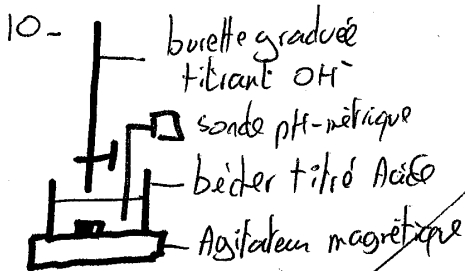 10-
burette graduée
titrant OH⁻
sonde pH-métrique
bécher titré Acide
Agitateur magnétique